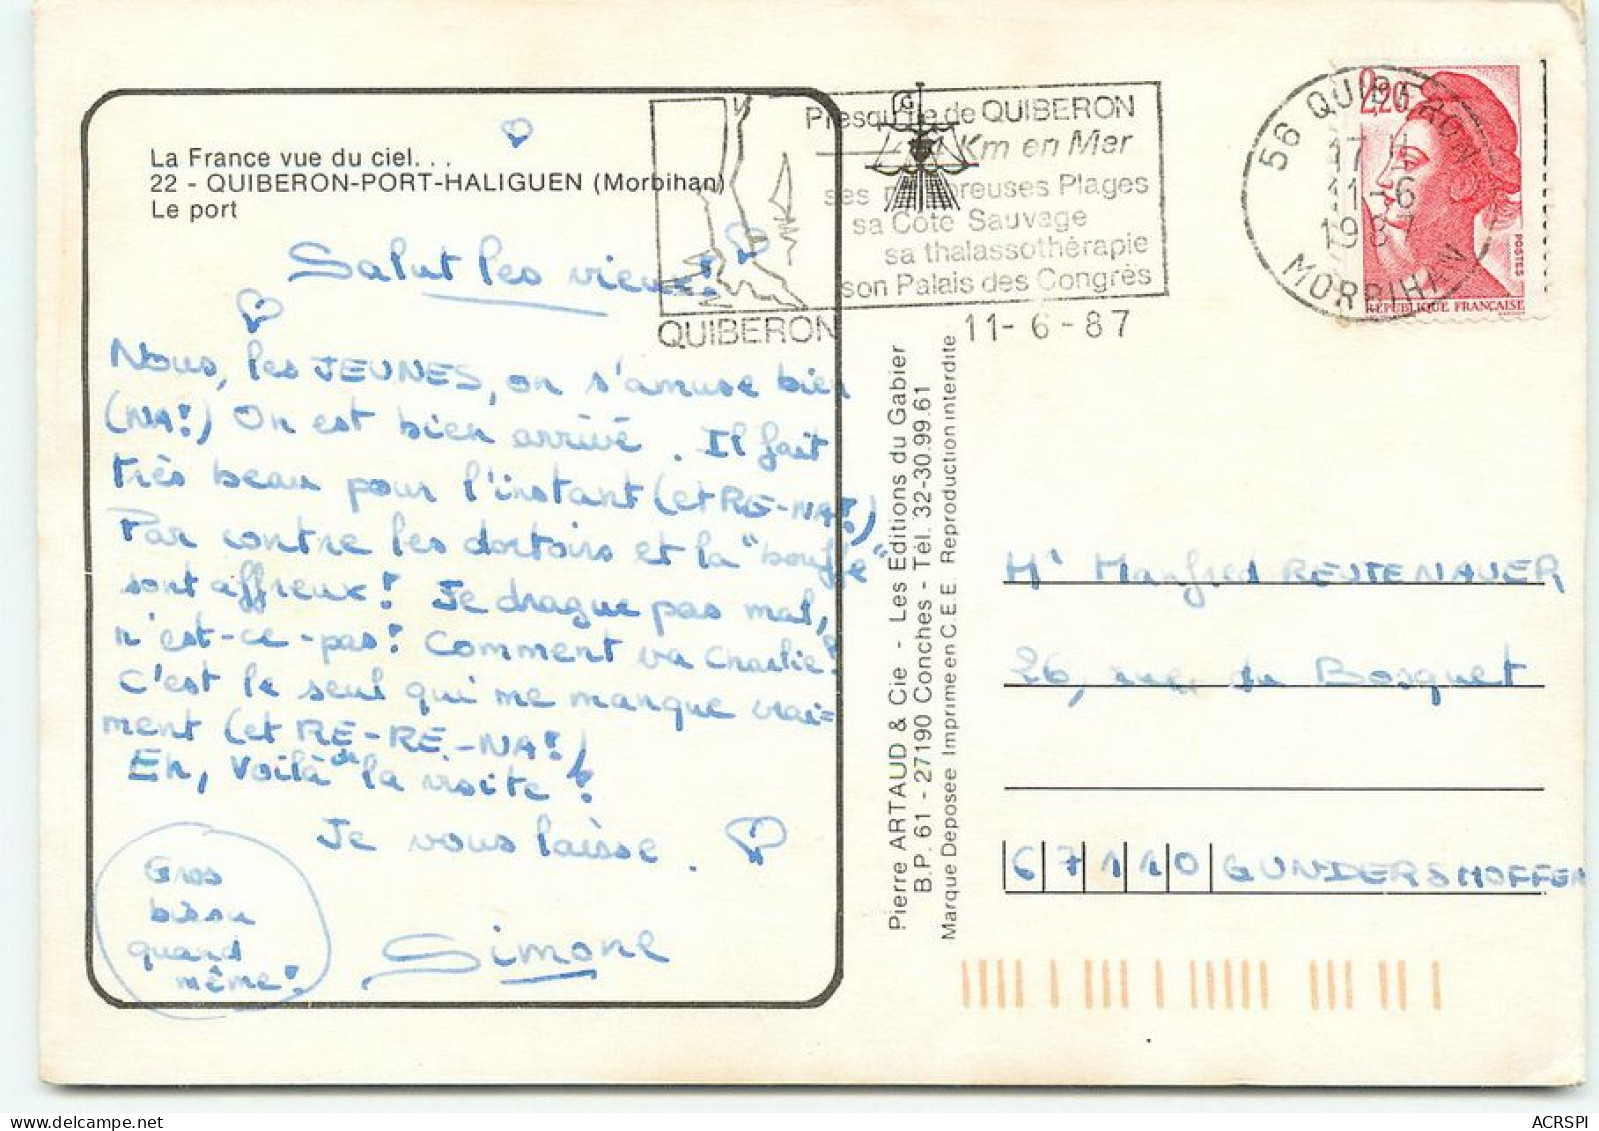 La France vue du ciel...
22 - QUIBERON-PORT-HALIGUEN (Morbihan)
Le port
Salut les vieux!
Nous, les JEUNES, on s'amuse bien
(NA!) On est bien arrivé. Il fait
très beau pour l'instant (et RE-NA!)
Par contre les dortoirs et la "bouffe"
sont affreux! Je drague pas mal,
n'est-ce-pas! Comment va Charlie?
C'est le seul qui me manque vrai=
ment (et RE-RE-NA!)
Eh, voilà de la visite!
Je vous laisse.
Gros
bisou
quand
même!
Simone
QUIBERON
Presqu'île de QUIBERON
Km en Mer
ses nombreuses Plages
sa Côte Sauvage
sa thalassothérapie
son Palais des Congrès
11-6-87
56 QUIBERON
17 H
11-6
1987
MORBIHAN
2,20
POSTES
REPUBLIQUE FRANÇAISE
Pierre ARTAUD & Cie - Les Editions du Gabier
B.P. 61 - 27190 Conches - Tél. 32-30.99.61
Marque Déposée Imprimé en C.E.E Reproduction interdite
Mr Manfred REUTENAUER
26, rue du Bosquet
67110 GUNDERSHOFFEN
ACRSPI